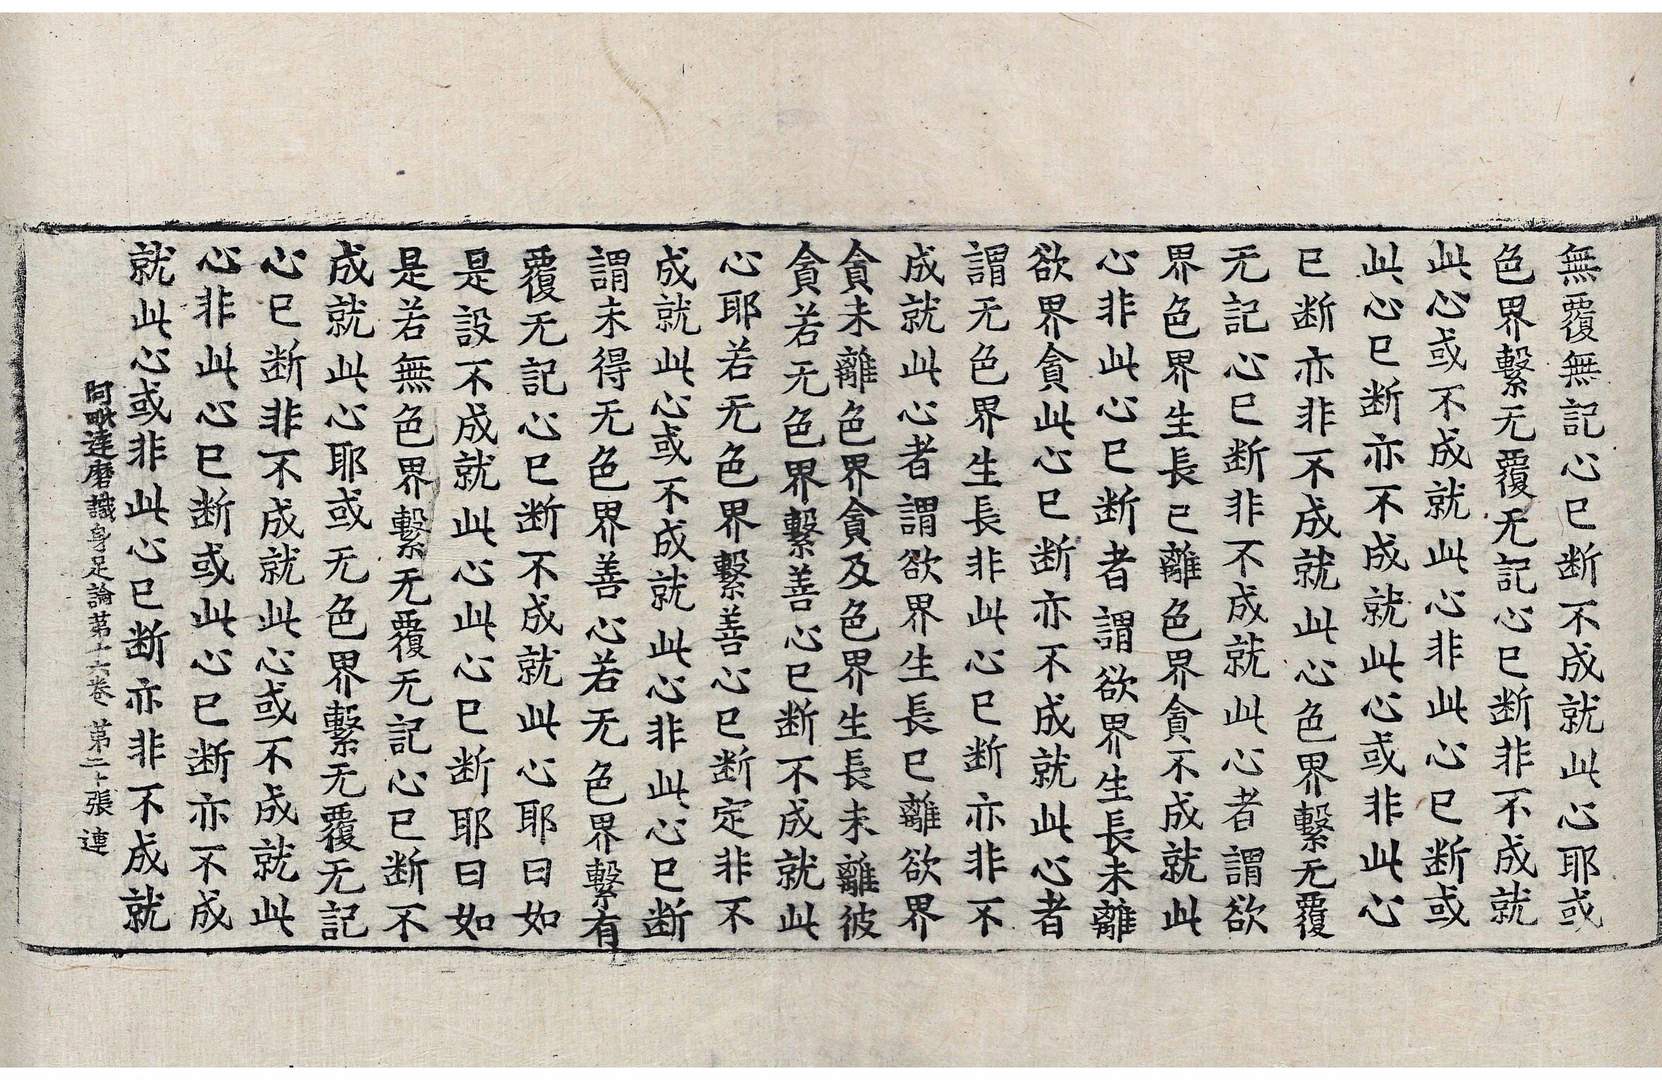 無覆無記心已断不成就此心耶或
色界繫无覆无記心已断非不成就
此心或不成就此心非此心已断或
此心已断亦不成就此心或非此心
已断亦非不成就此心色界繫无覆
无記心已断非不成就此心者謂欲
界色界生長已離色界貪不成就此
心非此心已断者謂欲界生長未離
欲界貪此心已断亦不成就此心者
謂无色界生長非此心已断亦非不
成就此心者謂欲界生長已離欲界
貪未離色界貪及色界生長未離彼
貪若无色界繫善心已断不成就此
心耶若无色界繫善心已断定非不
成就此心或不成就此心非此心已断
謂未得无色界善心若无色界繫有
覆无記心已断不成就此心耶曰如
是設不成就此心此心已断耶曰如
是若無色界繫无覆无記心已断不
成就此心耶或无色界繫无覆无記
心已断非不成就此心或不成就此
心非此心已断或此心已断亦不成
就此心或非此心已断亦非不成就
阿毗達磨識身足論第十六卷 第二十張 連